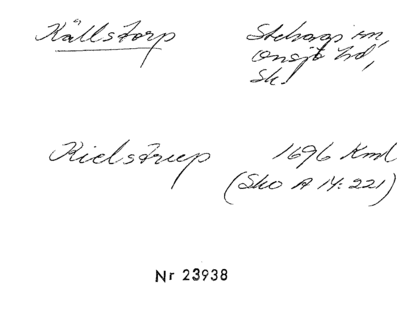 Källstorp Stehags sn,
Onsjö hd,
Sk.
Kielstrup 1696 Kml
(Sko A 14:221)
Nr 23938